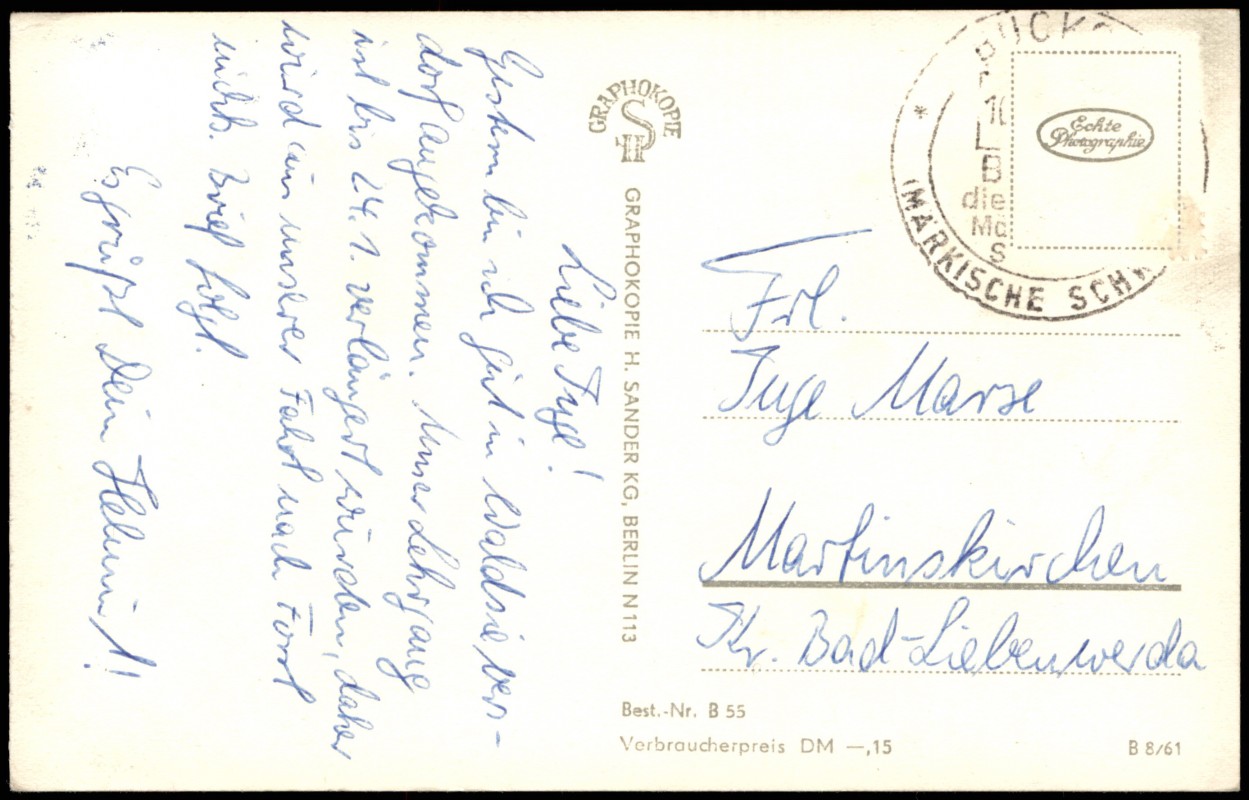 Liebe Inge!
Gestern bin ich gut in Waldsievers-
dorf angekommen. Unser Lehrgang
ist bis 24.1. verlängert worden, daher
wird aus unserer Fahrt nach Forst
nichts. Brief folgt.
Es grüßt Dein Helmut!
GRAPHOKOPIE
H
GRAPHOKOPIE H. SANDER KG, BERLIN N 113
BÜCKO
10
L
B
die
Mä
S
(MÄRKISCHE SCHW
Echte
Photographie
Frl.
Inge Marse
Martinskirchen
Kr. Bad-Liebenwerda
Best.-Nr. B 55
Verbraucherpreis DM —,15
B 8/61